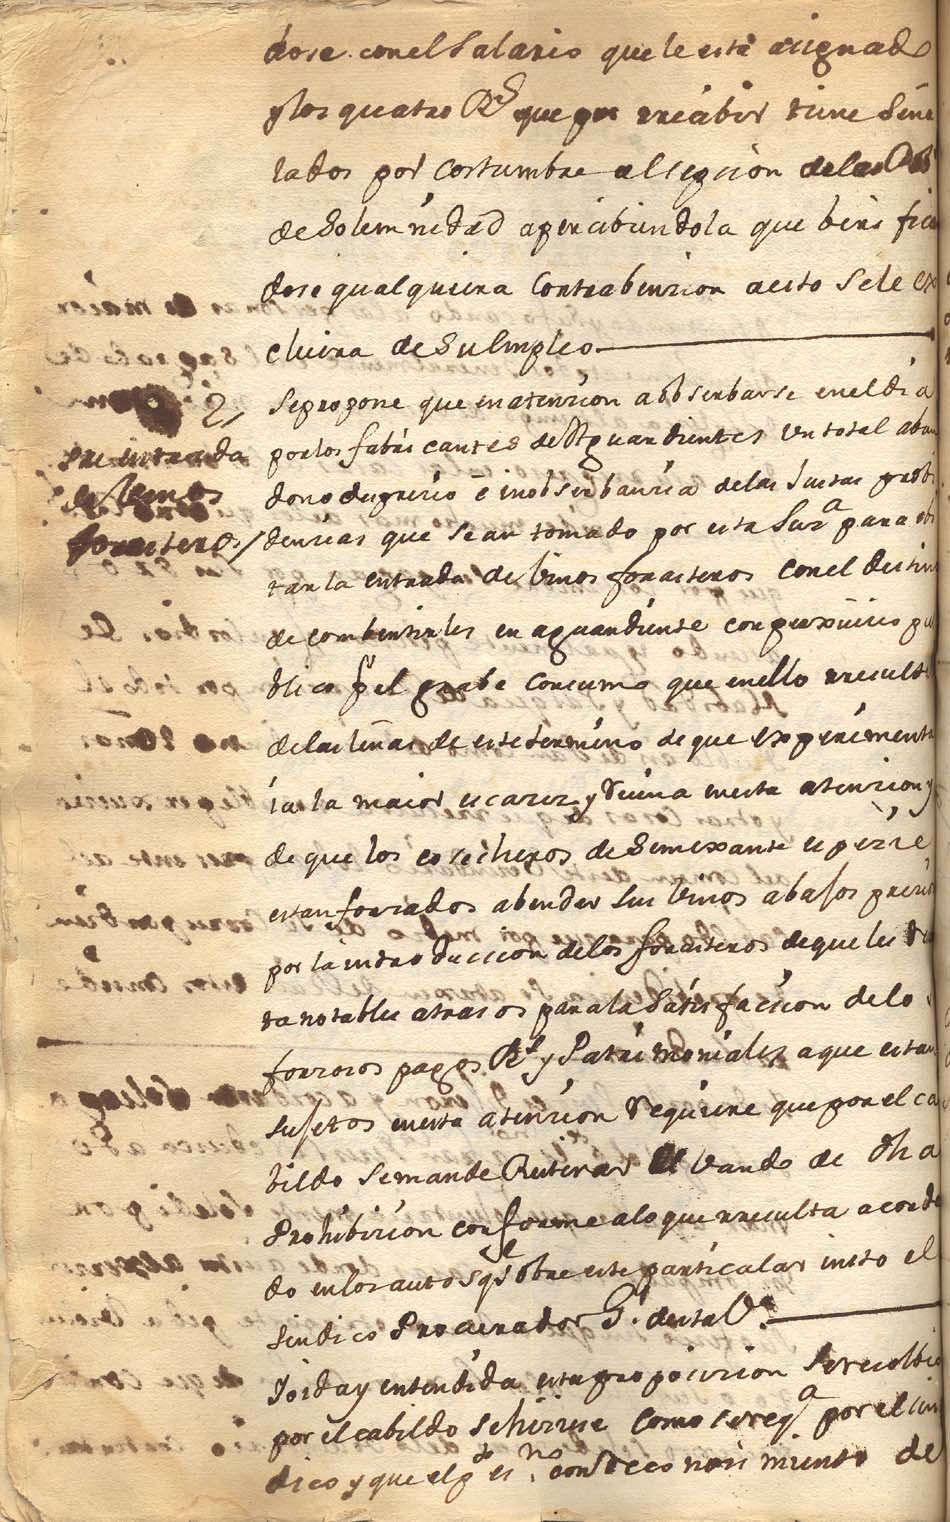 dose con el Salario que le esta asignado
y los quatro R.s que por recibir tiene Seña
lados por costumbre
de Solemnidad apercibiendola que berifican
dose qualquiera Contrabencion a esto Sele ex
cluira de Su Empleo
2
Se propone que en atencion a obserbarse en el dia
por los fabricantes de Aguardientes Un total aban
dono desprecio e inobserbancia de las Justas probi
pre entrada
de binos
forasteros
dencias que Se an tomado por esta Jus.a para ebi
tar la entrada de binos forasteros con el destino
de combertirles en aguardiente con perxuicio pu
blico p.r el grabe Consumo que en ello rresulta
de las leñas de este termino de que experimenta
ia la maior escacez y ruina en esta atencion y
de que los cosecheros de Semexante especie
estan forzados a bender Sus binos a bajos precios
por la introduccion de los forasteros de que les
ta notables atrasos para la Satisfaccion de lo
forzosos pagos R.s y Patrimoniales a que estan
sujetos en esta atencion requiere que por el ca
bildo Se mande Reiterar el Vando de dha
Prohibicion conforme a lo que rresulta acorda
do en los autos q.e Sobre este particular insto el
Sindico Procurador G.l de esta V.a
Y oida y entendida esta proposicion Se resolbio
por el cabildo Se hiciese como se req.a por el Sin
dico y que el p.o es.no con reconocimiento de